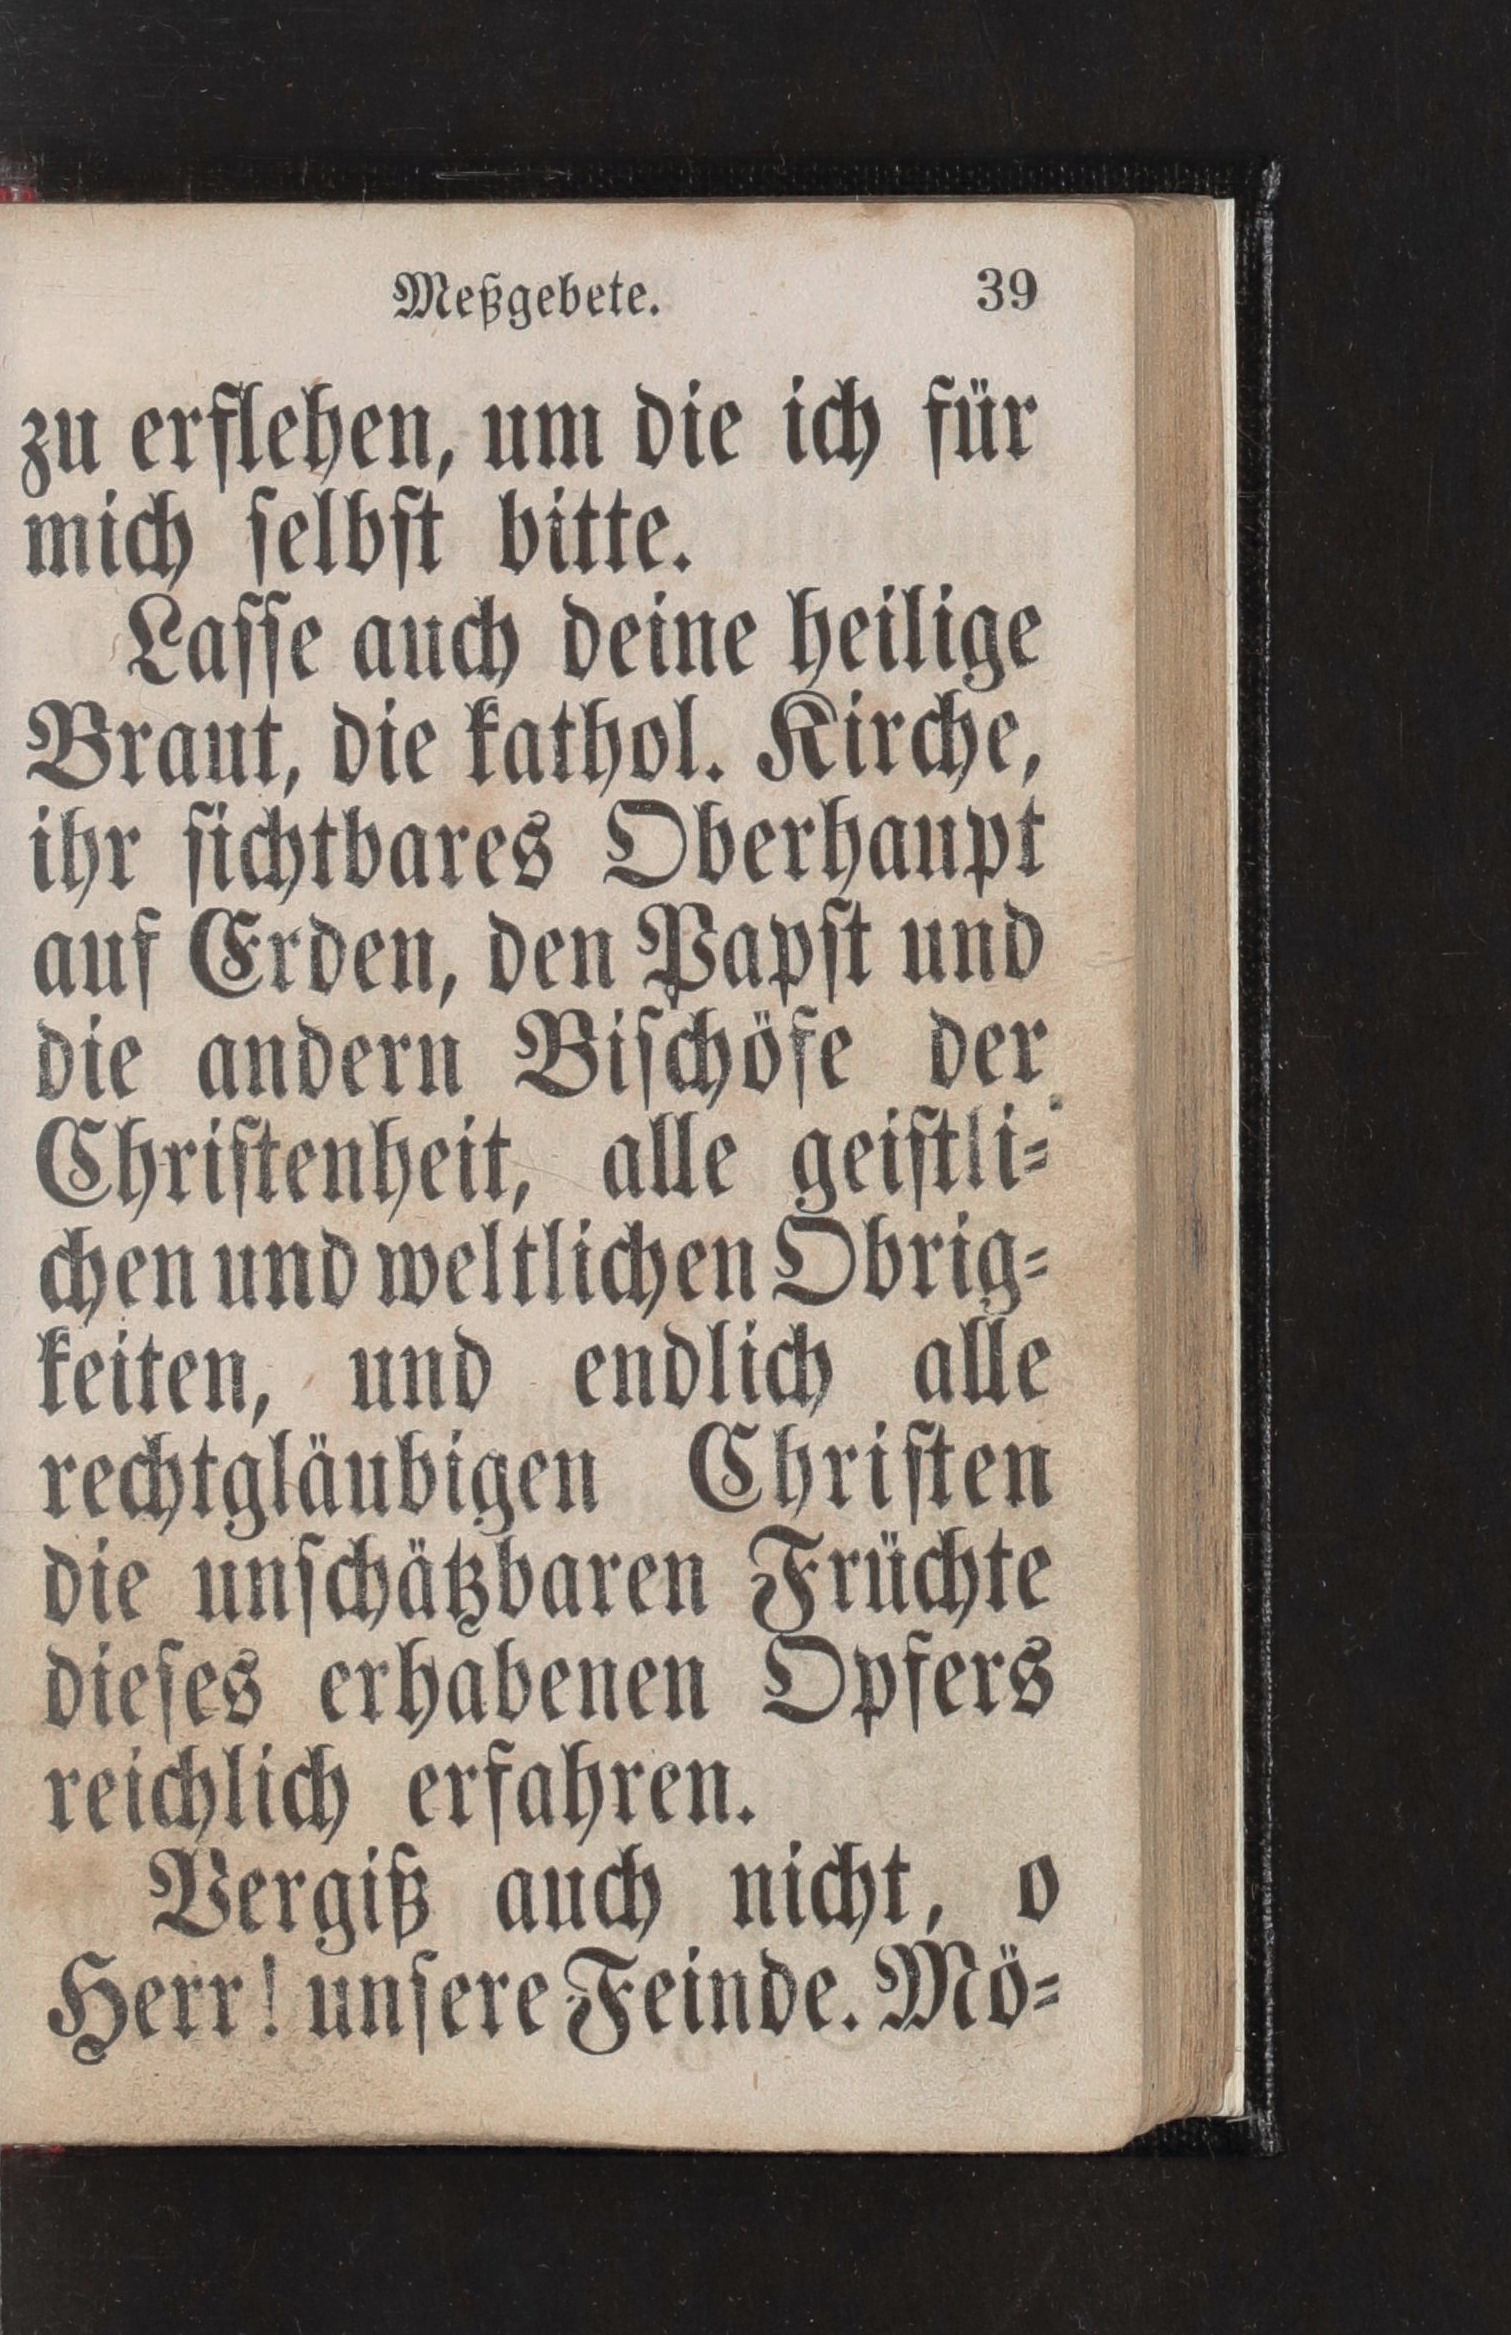 Meßgebete. 39
zu erflehen, um die ich für
mich ſelbſt bitte.
Laſſe auch deine heilige
Braut, die kathol. Kirche,
ihr ſichtbares Oberhaupt
auf Erden, den Papſt und
die andern Biſchöfe der
Chriſtenheit, alle geiſtli⸗
chen und weltlichen Obrig⸗
keiten, und endlich alle
rechtgläubigen Chriſten
die unſchätzbaren Früchte
dieſes erhabenen Opfers
reichlich erfahren.
Vergiß auch nicht, o
Herr! unſere Feinde. Mö⸗